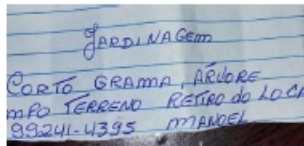 JARDINAGEM
CORTO GRAMA, ÁRVORE
MPO TERRENO RETIRO do LOCA
99241-4395 MANOEL